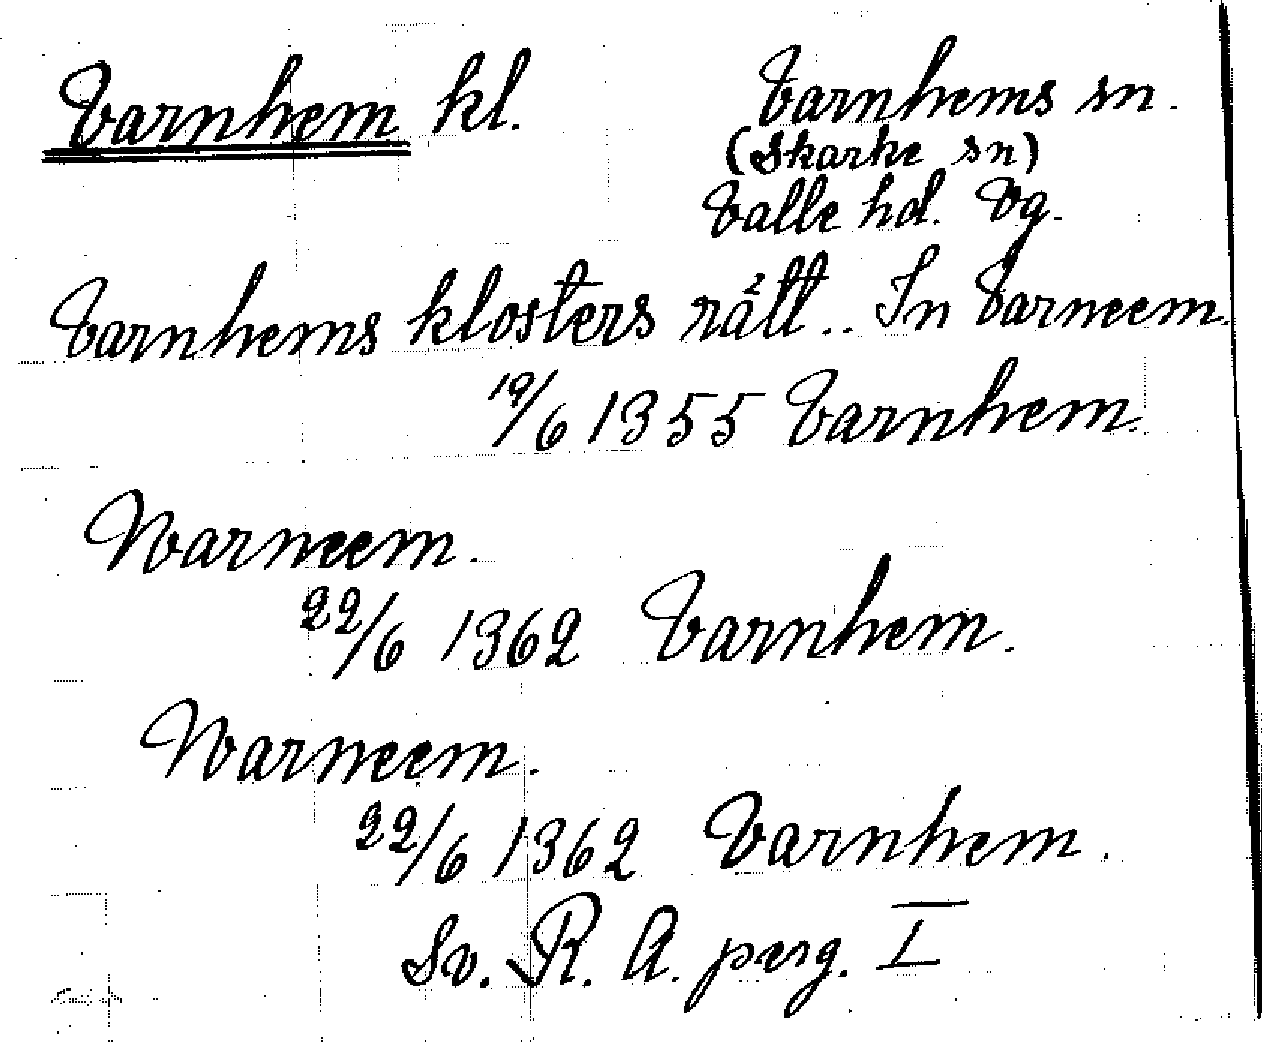 Varnhem kl.
Varnhems sn.
(Skarke sn)
Valle hd. Vg.
Varnhems klosters rätt.. In Varneem.
19/6 1355 Varnhem.
Warneem.
22/6 1362 Varnhem.
Warneem.
22/6 1362 Varnhem.
Sv. R. A. perg. I